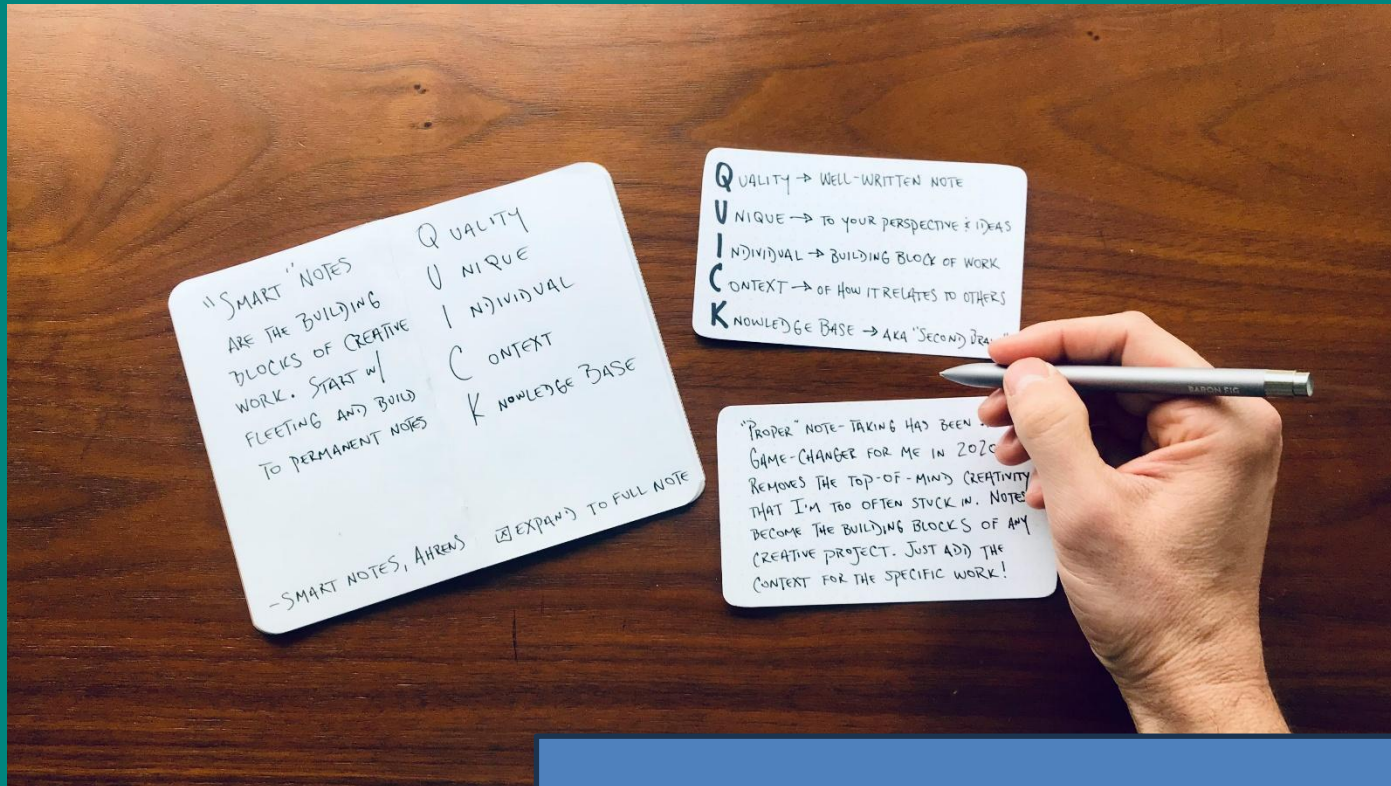 "SMART" NOTES
ARE THE BUILDING
BLOCKS OF CREATIVE
WORK. START W/
FLEETING AND BUILD
TO PERMANENT NOTES
QUALITY
UNIQUE
INDIVIDUAL
CONTEXT
KNOWLEDGE BASE
-SMART NOTES, AHRENS
☒ EXPAND TO FULL NOTE
QUALITY → WELL-WRITTEN NOTE
UNIQUE → TO YOUR PERSPECTIVE & IDEAS
INDIVIDUAL → BUILDING BLOCK OF WORK
CONTEXT → OF HOW IT RELATES TO OTHERS
KNOWLEDGE BASE → AKA "SECOND
"PROPER" NOTE-TAKING HAS BEEN
GAME-CHANGER FOR ME IN 2020
REMOVES THE TOP-OF-MIND CREATIVITY
THAT I'M TOO OFTEN STUCK IN. NOTES
BECOME THE BUILDING BLOCKS OF ANY
CREATIVE PROJECT. JUST ADD THE
CONTEXT FOR THE SPECIFIC WORK!
BARON FIG